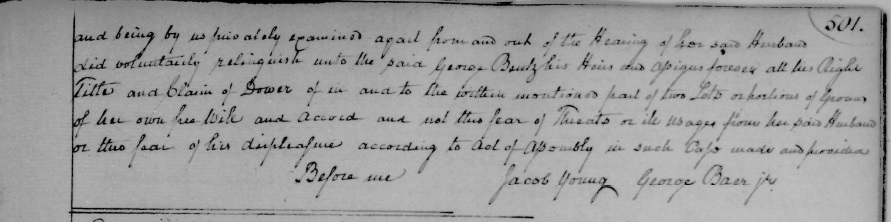 501.
and being by us privately examined apart from and out of the Hearing of her said Husband
did voluntarily relinquish unto the said George Bentz his Heirs and assigns forever all her Right
Title and Claim of Dower of in and to the within mentioned part of two Lots or portions of Ground
of her own free Will and Accord and not thro fear of Threats or ill usage from her said Husband
or thro fear of his displeasure according to Act of Assembly in such Case made and provided
Before me Jacob Young George Baer jr